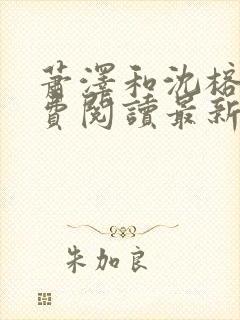 蕭澤和沈榕
費閱讀最新
朱加良